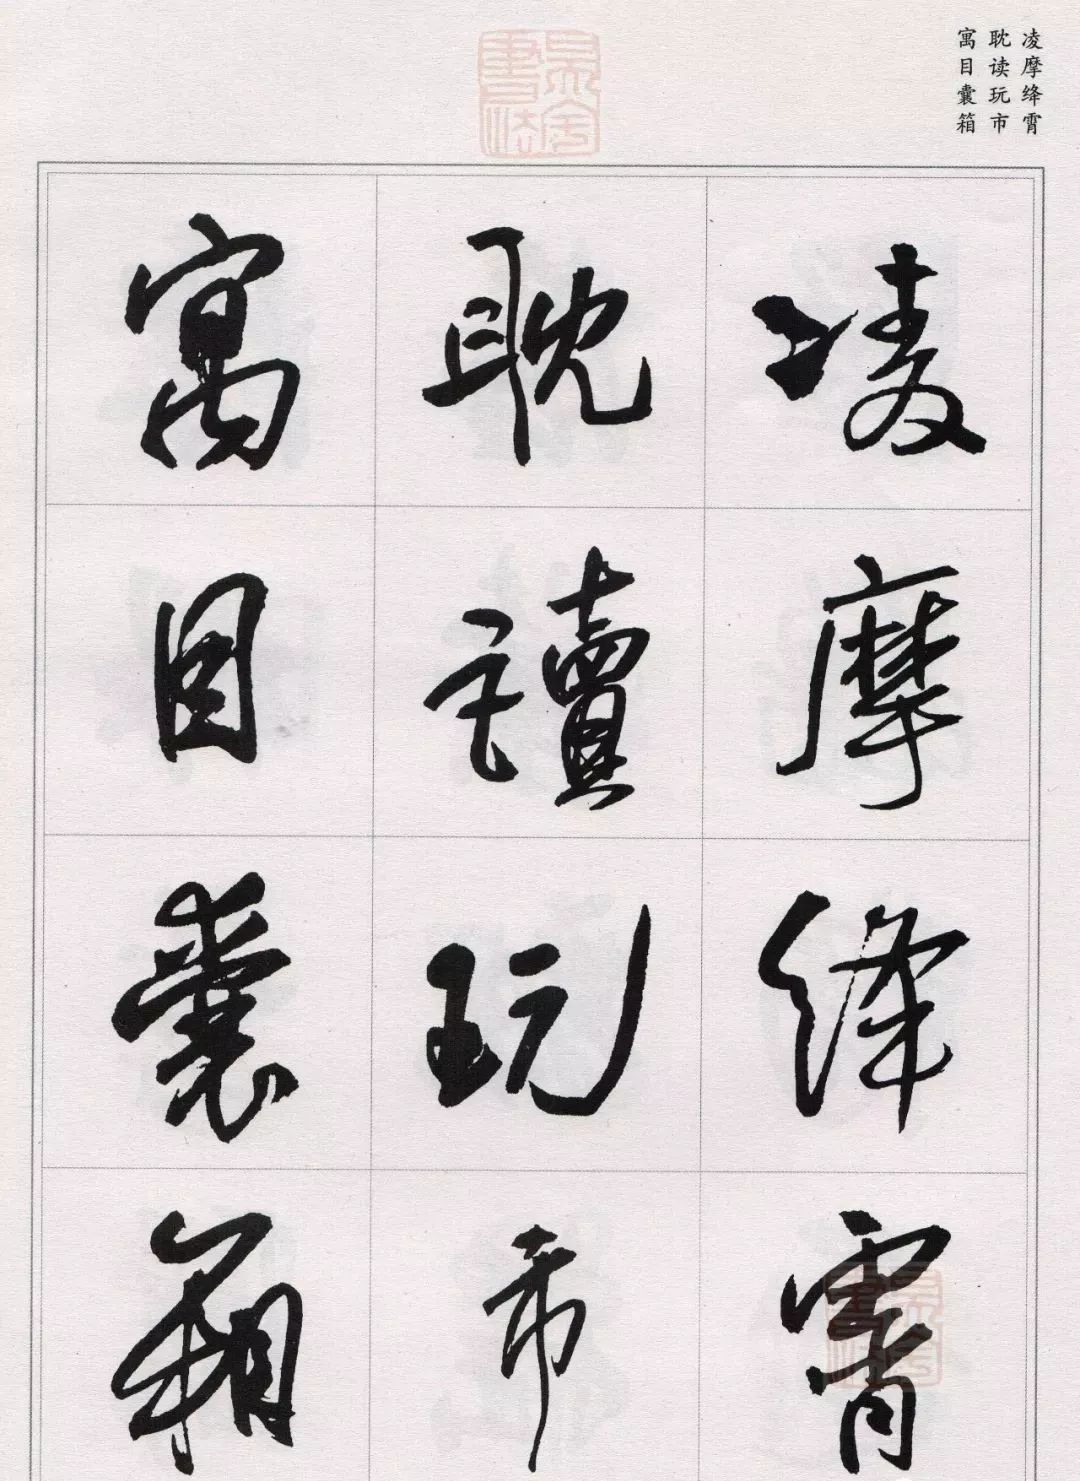 凌摩绛霄
耽读玩市
寓目囊箱
凌摩絳霄
耽讀玩市
寓目囊箱